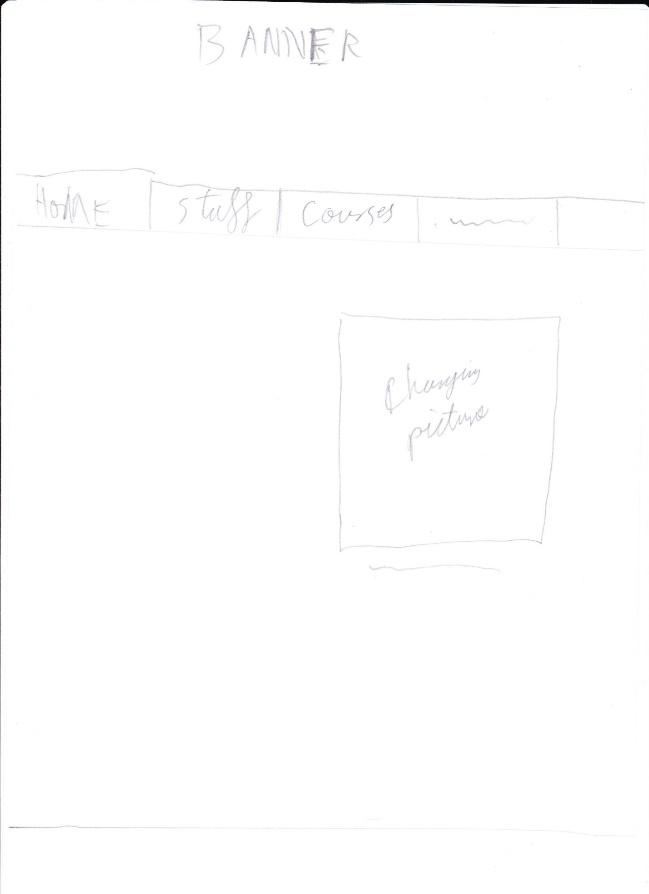 BANNER
HOME staff Courses
Changing
picture